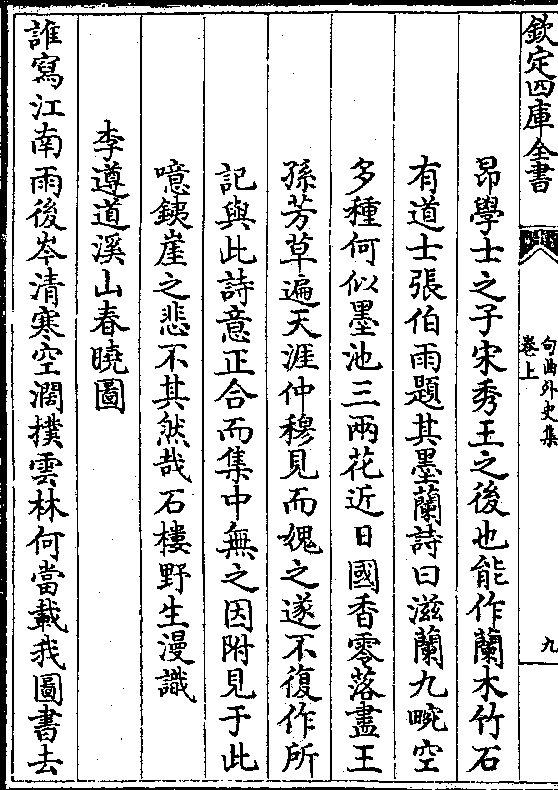 欽定四庫全書
句曲外史集
卷上
九
昂學士之子宋秀王之後也能作蘭木竹石
有道士張伯雨題其墨蘭詩曰滋蘭九畹空
多種何似墨池三兩花近日國香零落盡王
孫芳草遍天涯仲穆見而媿之遂不復作所
記與此詩意正合而集中無之因附見于此
噫銕崖之悲不其然哉石樓野生漫識
李遵道溪山春曉圖
誰寫江南雨後岑清寒空濶撲雲林何當載我圖書去